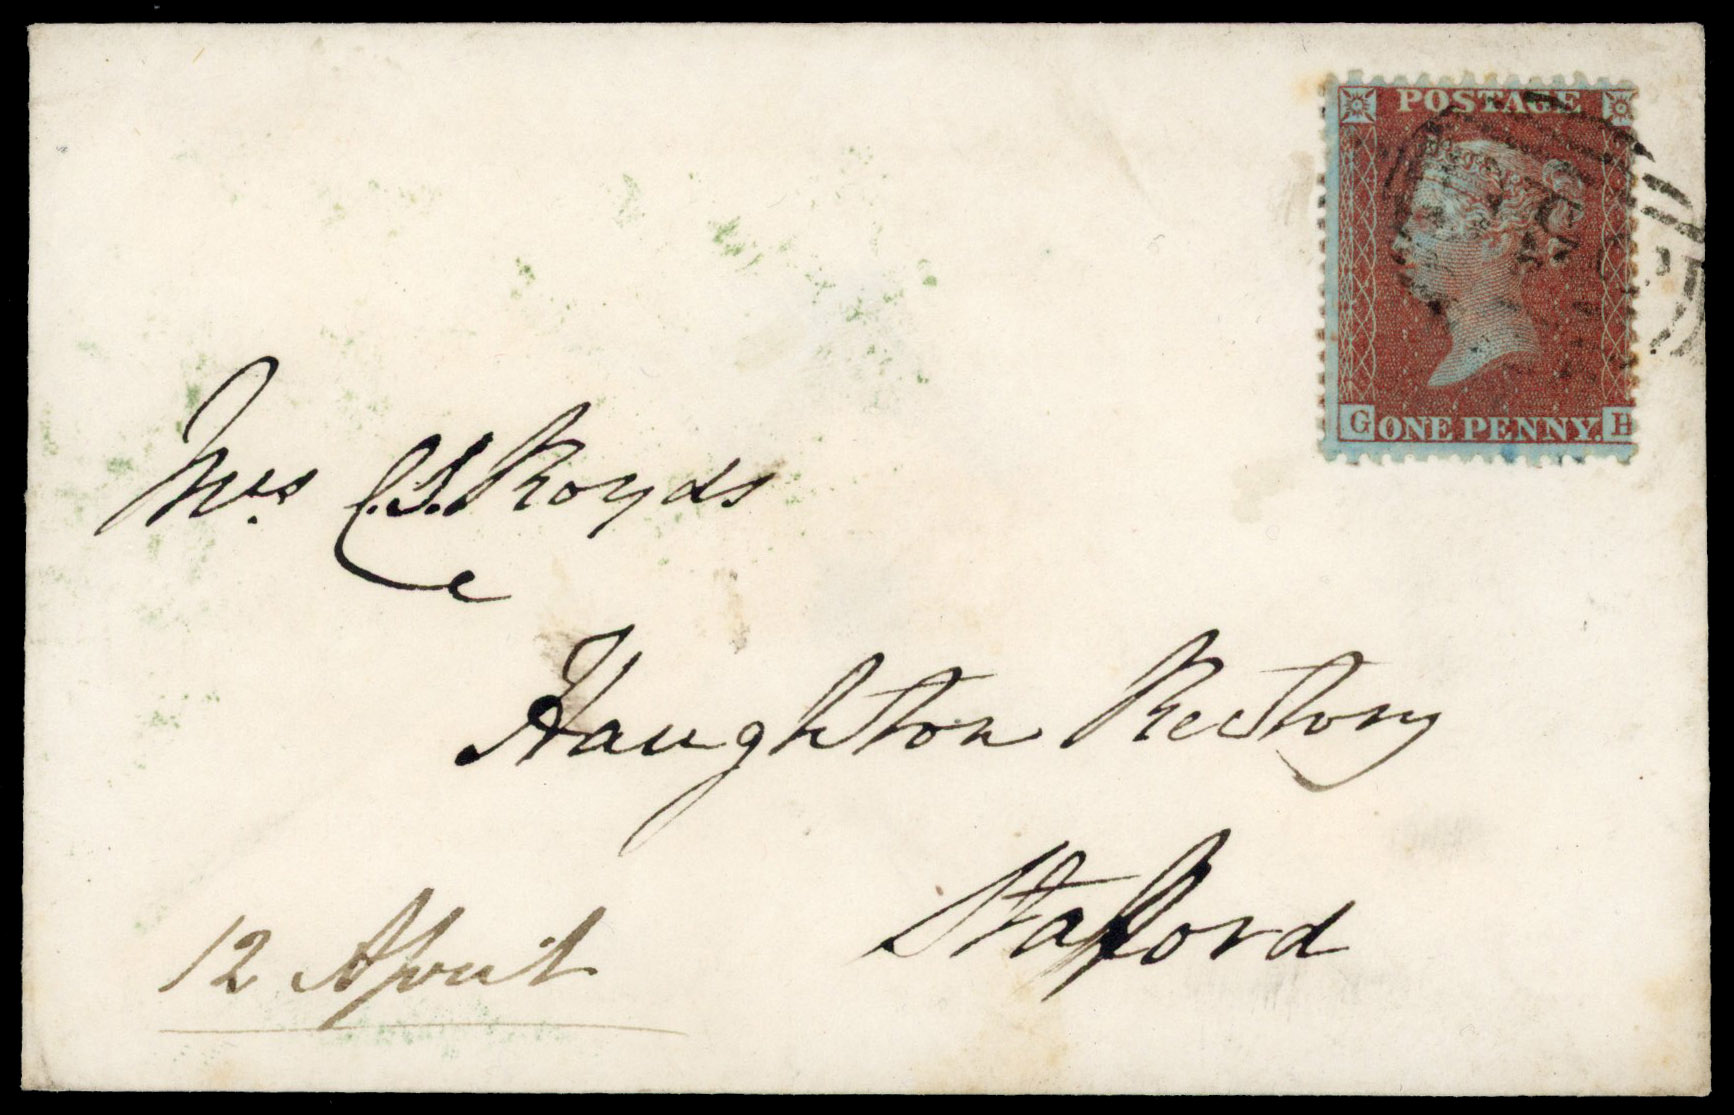 POSTAGE
G ONE PENNY. H
Mrs. C. S. Royds
Haughton Rectory
Stafford
12 April